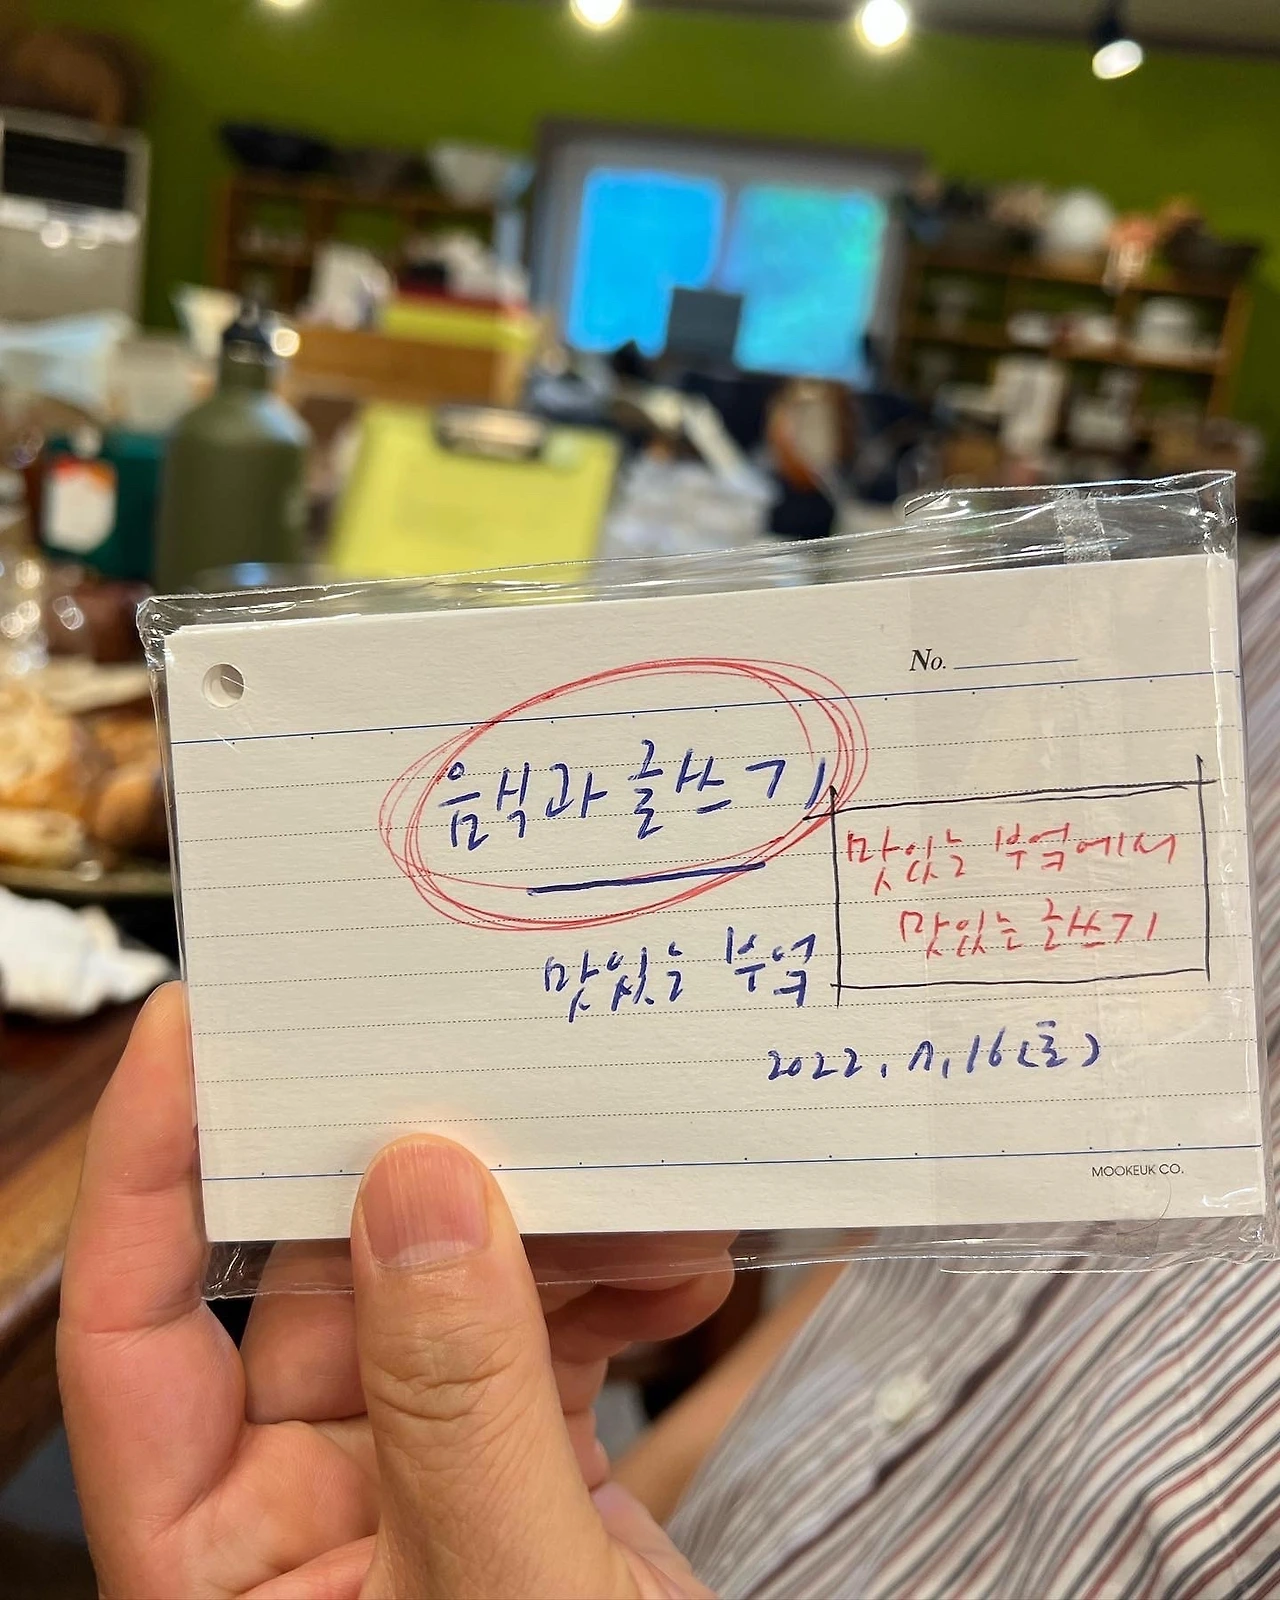 No.
음식과 글쓰기
맛있는 부엌에서
맛있는 글쓰기
맛있는 부엌
2022. 7. 16 (토)
MOOKEUK CO.